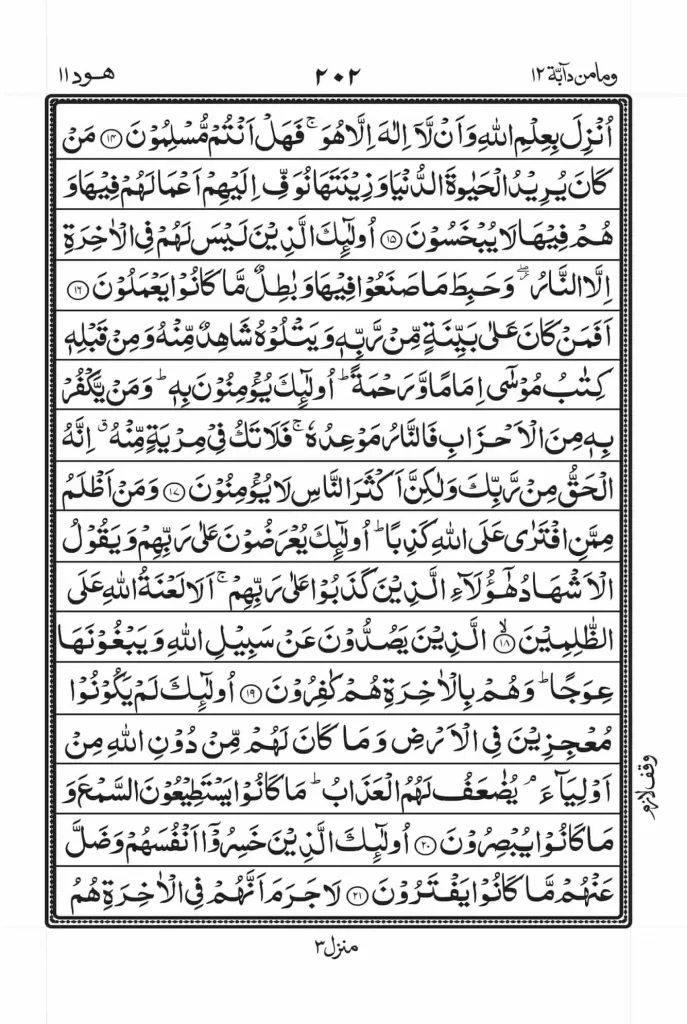 ومامن دآبة ١٢
٢٠٢
هود ١١
اُنْزِلَ بِعِلْمِ اللّٰهِ وَاَنْ لَّاۤ اِلٰهَ اِلَّا هُوَ ۚ فَهَلْ اَنْتُمْ مُّسْلِمُوْنَ ﴿۱۴﴾ مَنْ
كَانَ يُرِيْدُ الْحَيٰوةَ الدُّنْيَا وَزِيْنَتَهَا نُوَفِّ اِلَيْهِمْ اَعْمَالَهُمْ فِيْهَا وَ
هُمْ فِيْهَا لَا يُبْخَسُوْنَ ﴿۱۵﴾ اُولٰٓئِكَ الَّذِيْنَ لَيْسَ لَهُمْ فِى الْاٰخِرَةِ
اِلَّا النَّارُ ۖ وَحَبِطَ مَا صَنَعُوْا فِيْهَا وَبٰطِلٌ مَّا كَانُوْا يَعْمَلُوْنَ ﴿۱۶﴾
اَفَمَنْ كَانَ عَلٰى بَيِّنَةٍ مِّنْ رَّبِّهٖ وَيَتْلُوْهُ شَاهِدٌ مِّنْهُ وَمِنْ قَبْلِهٖ
كِتٰبُ مُوْسٰٓى اِمَامًا وَّرَحْمَةً ؕ اُولٰٓئِكَ يُؤْمِنُوْنَ بِهٖ ؕ وَمَنْ يَّكْفُرْ
بِهٖ مِنَ الْاَحْزَابِ فَالنَّارُ مَوْعِدُهٗ ۚ فَلَا تَكُ فِىْ مِرْيَةٍ مِّنْهُ ۗ اِنَّهُ
الْحَقُّ مِنْ رَّبِّكَ وَلٰكِنَّ اَكْثَرَ النَّاسِ لَا يُؤْمِنُوْنَ ﴿۱۷﴾ وَمَنْ اَظْلَمُ
مِمَّنِ افْتَرٰى عَلَى اللّٰهِ كَذِبًا ؕ اُولٰٓئِكَ يُعْرَضُوْنَ عَلٰى رَبِّهِمْ وَيَقُوْلُ
الْاَشْهَادُ هٰٓؤُلَآءِ الَّذِيْنَ كَذَبُوْا عَلٰى رَبِّهِمْ ۚ اَلَا لَعْنَةُ اللّٰهِ عَلَى
الظّٰلِمِيْنَ ﴿۱۸﴾ۙ الَّذِيْنَ يَصُدُّوْنَ عَنْ سَبِيْلِ اللّٰهِ وَيَبْغُوْنَهَا
عِوَجًا ؕ وَهُمْ بِالْاٰخِرَةِ هُمْ كٰفِرُوْنَ ﴿۱۹﴾ اُولٰٓئِكَ لَمْ يَكُوْنُوْا
مُعْجِزِيْنَ فِى الْاَرْضِ وَمَا كَانَ لَهُمْ مِّنْ دُوْنِ اللّٰهِ مِنْ
اَوْلِيَآءَ ۘ يُضٰعَفُ لَهُمُ الْعَذَابُ ؕ مَا كَانُوْا يَسْتَطِيْعُوْنَ السَّمْعَ وَ
مَا كَانُوْا يُبْصِرُوْنَ ﴿۲۰﴾ اُولٰٓئِكَ الَّذِيْنَ خَسِرُوْۤا اَنْفُسَهُمْ وَضَلَّ
عَنْهُمْ مَّا كَانُوْا يَفْتَرُوْنَ ﴿۲۱﴾ لَا جَرَمَ اَنَّهُمْ فِى الْاٰخِرَةِ هُمُ
وقف لازم
منزل ٣